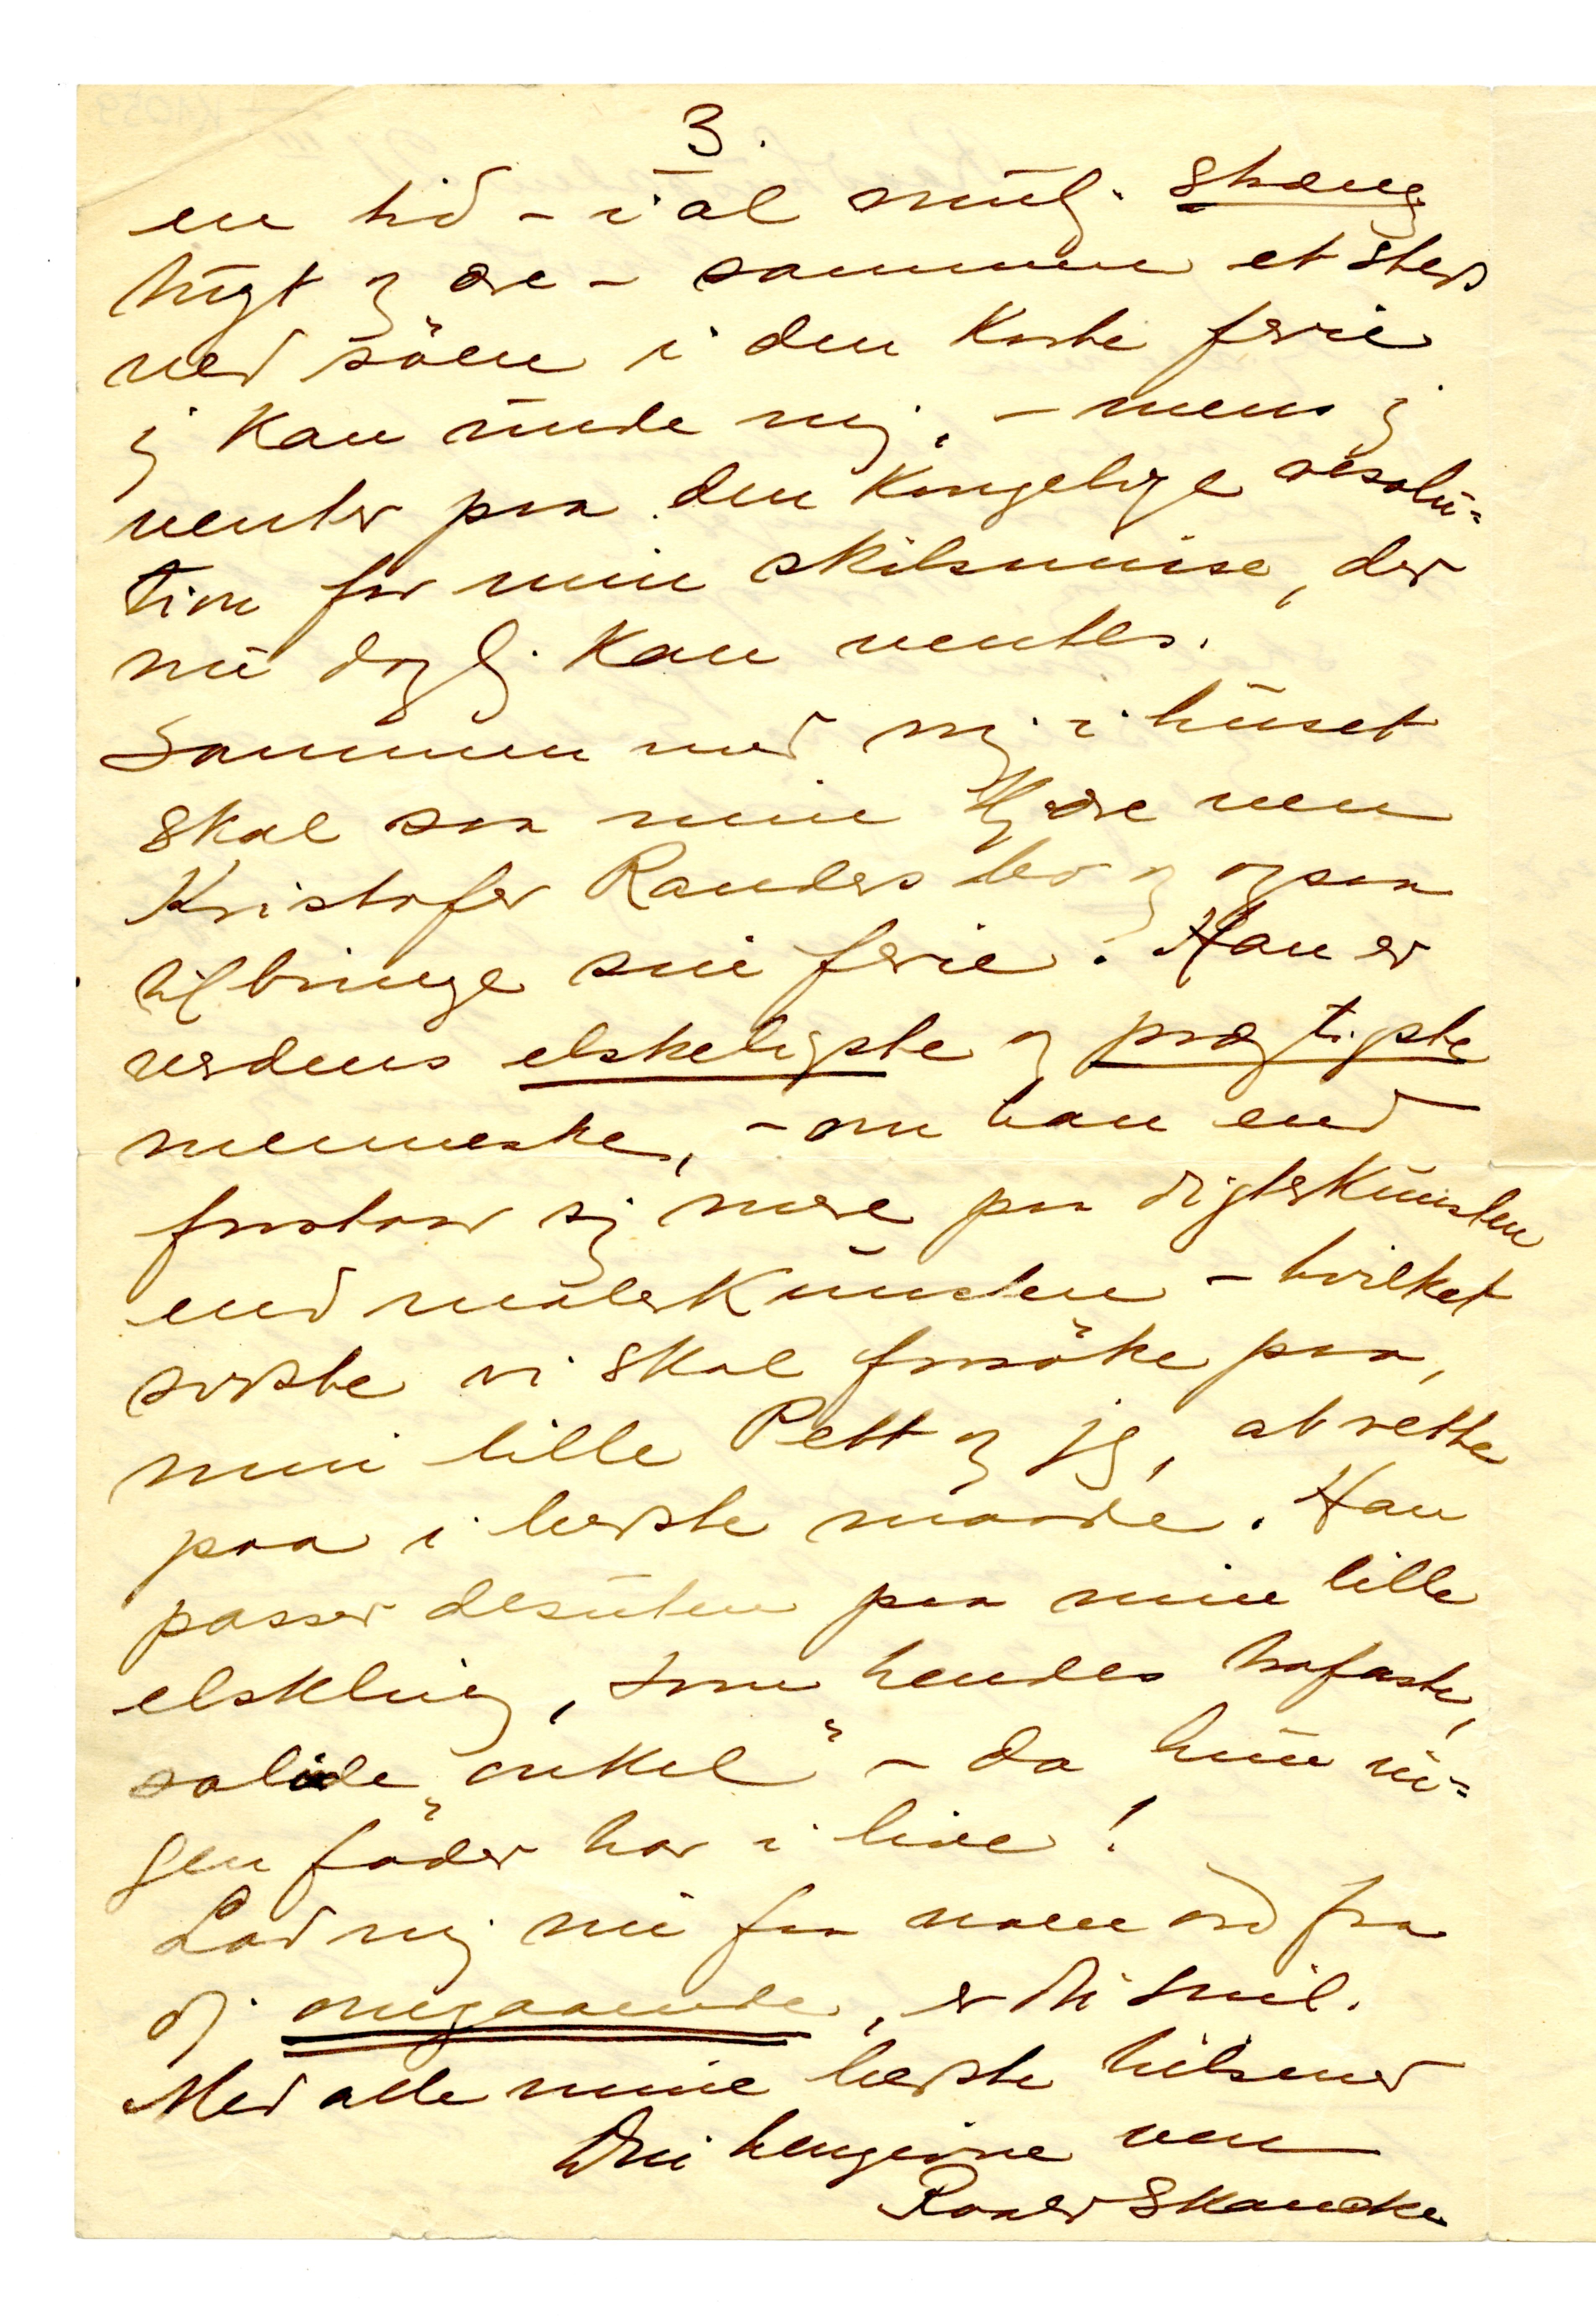 3.
en tid – i al mulig streng
tugt og ære – sammen et sted
ved söen i den korte ferie
jeg kan unde mig, – mens jeg
venter paa den kongelige resolu-
tion for min skilsmisse, der
nu dagl. kan ventes.
Sammen med mig i huset
skal saa min kjære ven
Kristofer Randers bo og ogsaa
tilbringe sin ferie. Han er
verdens elskeligste og prægtigste
menneske, – om han end
forstaar sig mere paa digterkunsten
end malerkunsten – hvilket
sidste vi skal forsöke paa,
min lille Pett og jeg, at rette
paa i bedste maade. Han
passer desuten paa min lille
elskling, som hendes trofaste,
solide "onkel" – da hun in-
gen fader har i live!
Lad mig nu faa noen ord fra
dig omgaaende, er du snil.
Med alle mine bedste hilsener
Din hengivne ven
Roald Skancke